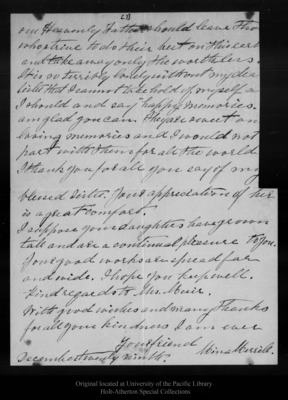 our Heavenly Father should leave those
who strive to do their best on this earth
and take away only the worthless.
It is so terribly lonely without my dear
sister that I cannot take hold of myself as
I should and say happy memories.
am glad you can. They are sweet and
loving memories and I would not
part with them for all the world
I thank you for all you say of my
blessed sister. Your appreciation of her
is a great comfort.
I suppose your daughters have grown
tall and are a continual pleasure to you.
Your good works are spread far
and wide. I hope you keep well.
Kind regards to Mrs. Muir.
With good wishes and many thanks
for all your kindness I am ever
Your friend
Mina Merrill.
December twenty ninth.
Original located at University of the Pacific Library
Holt-Atherton Special Collections